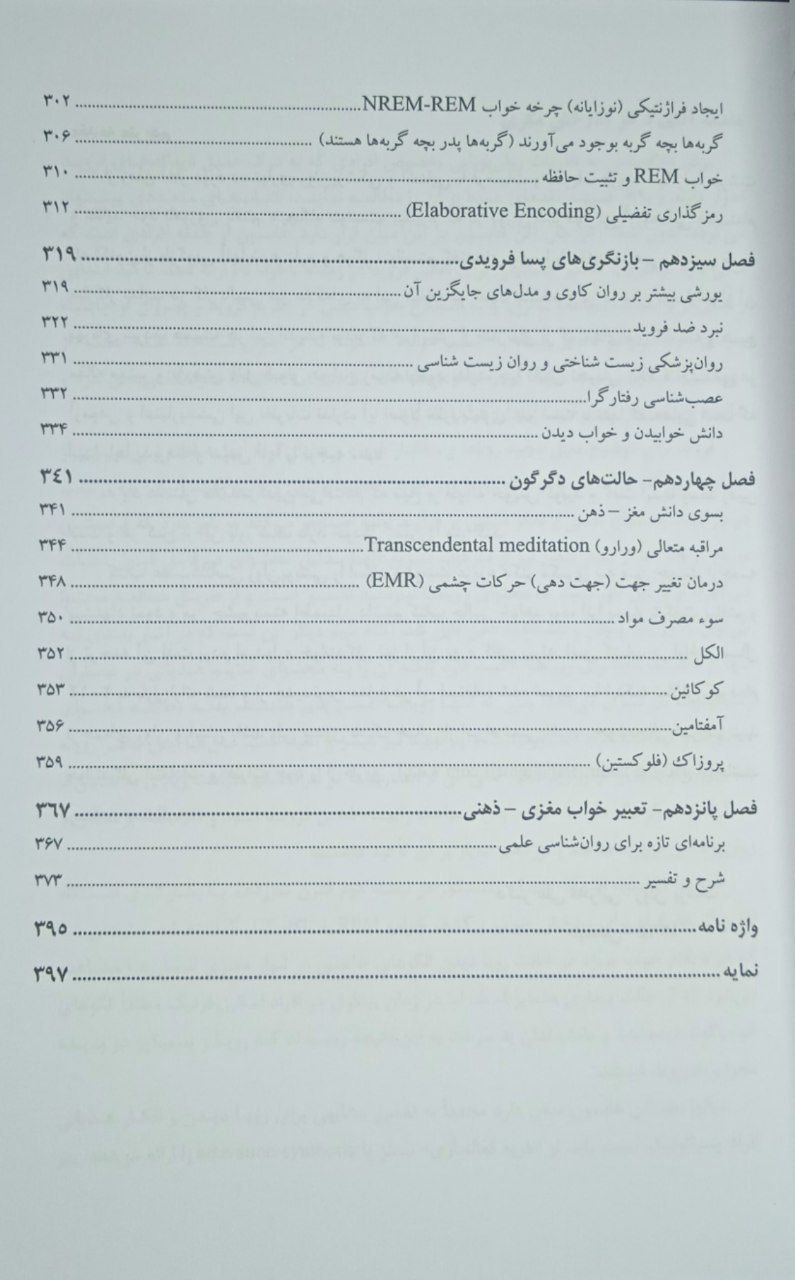 ایجاد فراژنتیکی (نوزایانه) چرخه خواب NREM-REM ........ ۳۰۲
گربه‌ها بچه گربه بوجود می‌آورند (گربه‌ها پدر بچه گربه‌ها هستند) ........ ۳۰۶
خواب REM و تثبیت حافظه ........ ۳۱۰
رمزگذاری تفضیلی (Elaborative Encoding) ........ ۳۱۲
فصل سیزدهم – بازنگری‌های پسا فرویدی ........ ۳۱۹
یورشی بیشتر بر روان کاوی و مدل‌های جایگزین آن ........ ۳۱۹
نبرد ضد فروید ........ ۳۲۲
روان‌پزشکی زیست شناختی و روان زیست شناسی ........ ۳۳۱
عصب‌شناسی رفتارگرا ........ ۳۳۲
دانش خوابیدن و خواب دیدن ........ ۳۳۴
فصل چهاردهم- حالت‌های دگرگون ........ ۳۴۱
بسوی دانش مغز – ذهن ........ ۳۴۱
مراقبه متعالی (ورارو) Transcendental meditation ........ ۳۴۴
درمان تغییر جهت (جهت دهی) حرکات چشمی (EMR) ........ ۳۴۸
سوء مصرف مواد ........ ۳۵۰
الکل ........ ۳۵۲
کوکائین ........ ۳۵۳
آمفتامین ........ ۳۵۶
پروزاک (فلوکستین) ........ ۳۵۹
فصل پانزدهم- تعبیر خواب مغزی – ذهنی ........ ۳۶۷
برنامه‌ای تازه برای روان‌شناسی علمی ........ ۳۶۷
شرح و تفسیر ........ ۳۷۳
واژه نامه ........ ۳۹۵
نمایه ........ ۳۹۷